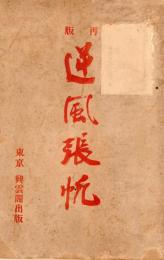 再版
逆風張帆
東京 興雲閣出版